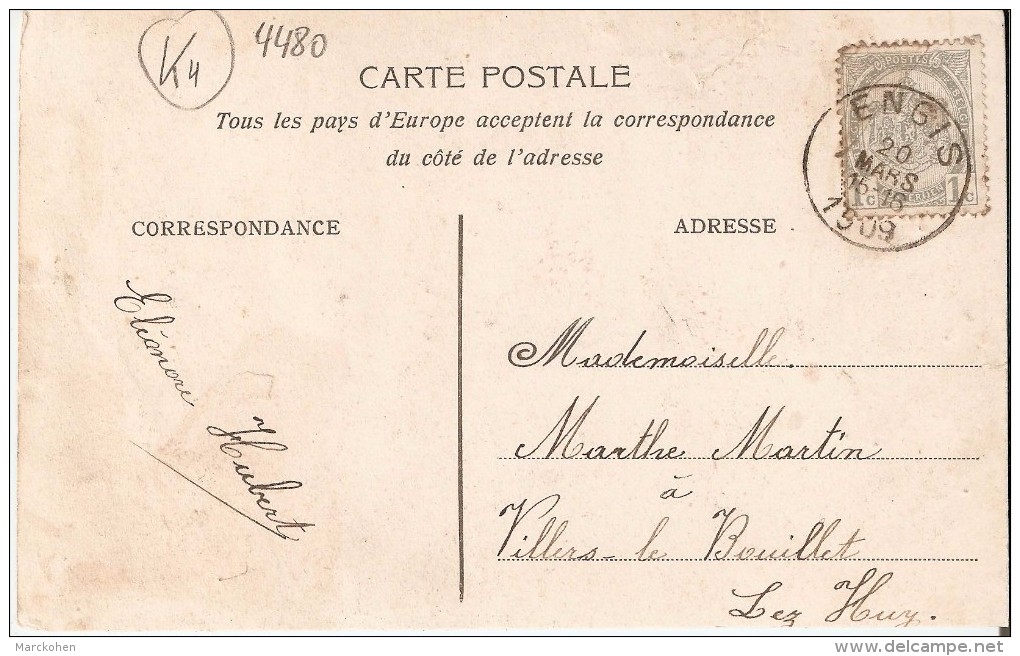 K4
4480
CARTE POSTALE
Tous les pays d'Europe acceptent la correspondance
du côté de l'adresse
CORRESPONDANCE
ADRESSE
POSTES
1C 1C
ENGIS
20
MARS
1909
Eléonore
Hubert
Mademoiselle
Marthe Martin
à
Villers-le Bouillet
Lez Huy.
Marckohen
delcampe.net